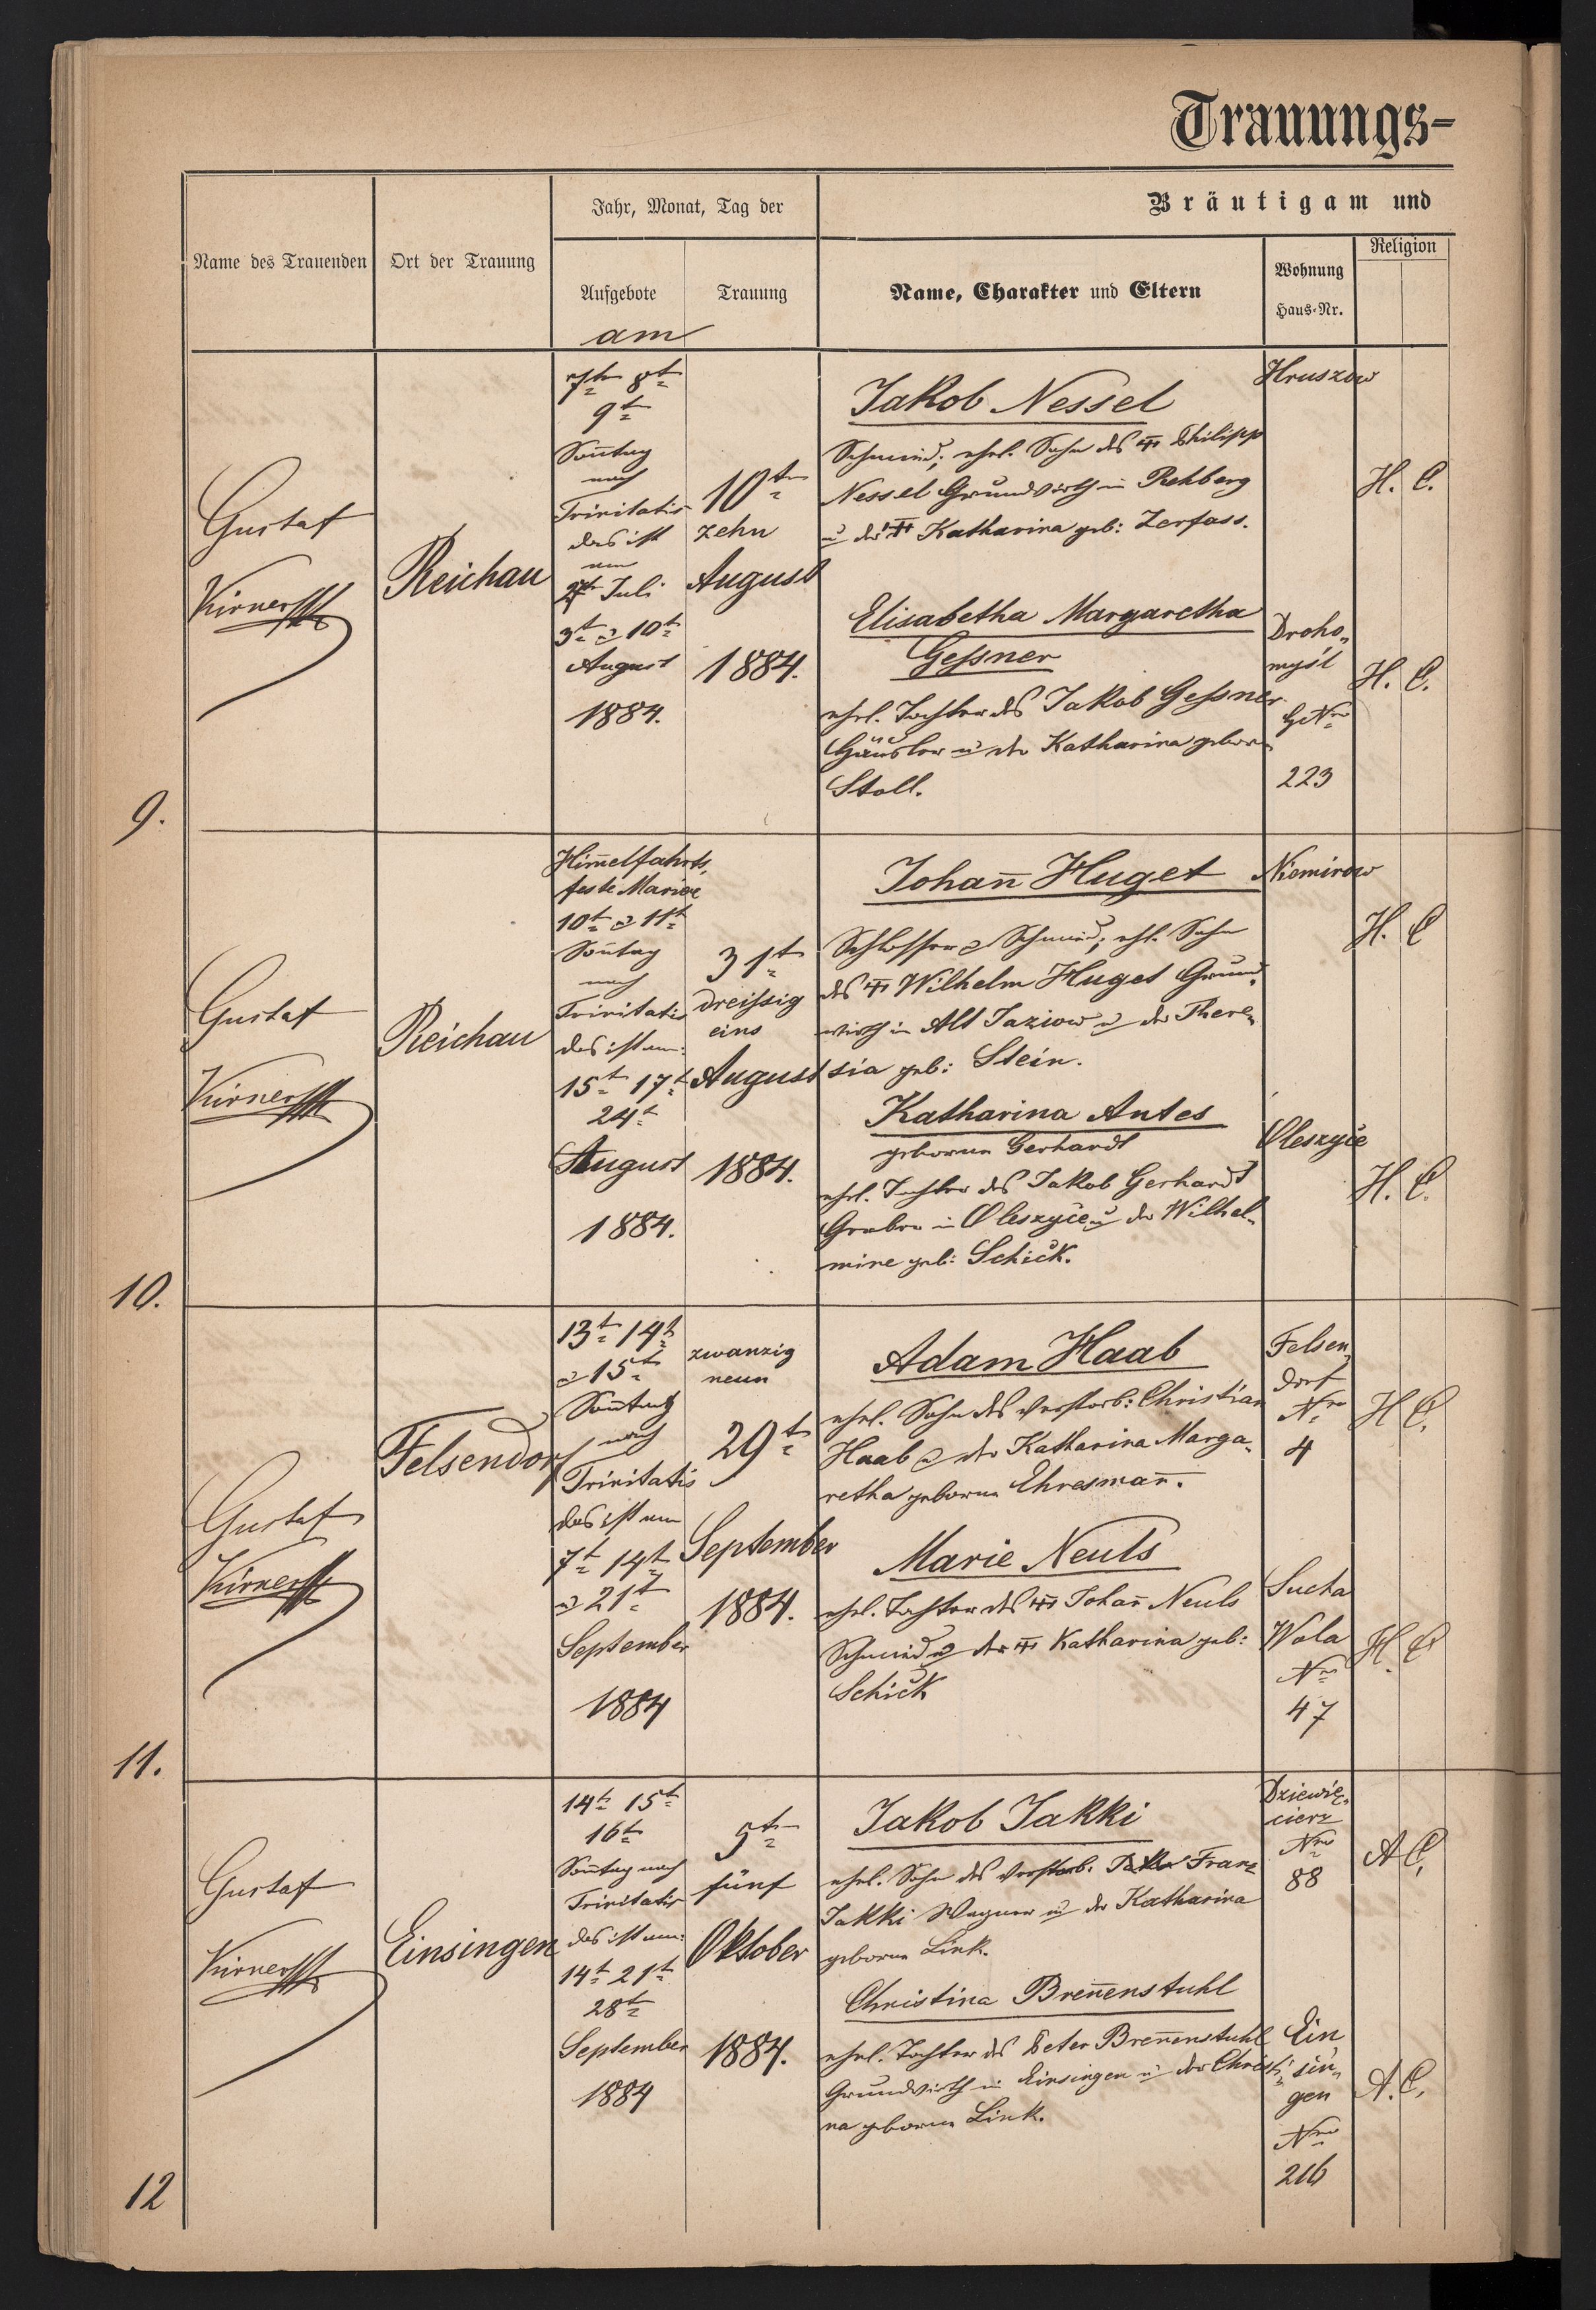 Trauungs-
Jahr, Monat, Tag der
Bräutigam und
Name des Trauenden
Ort der Trauung
Aufgebote
Trauung
Name, Charakter und Eltern
Wohnung
Haus-Nr.
Religion
am
9.
Gustaf
Reichau
7te 8te
9te
Soñtag
nach
Trinitatis
das ist
am
27te Juli
3te u 10te
August
1884.
10te
zehn
August
1884.
Jakob Nessel
Schmied; ehel. Sohn des Philipp
Nessel Grundwirth in Rehberg
u der Katharina geb: Zerfass.
Hruszow
H. C.
Elisabetha Margaretha
Geſsner
ehel. Tochter des Jakob Geſsner
Häusler u der Katharina geborn
Stoll.
Droho-
myśl
Nro
223
H. C.
10.
Gustaf
Reichau
Him̄elfahrts-
feste Mariae
10te u 11te
Soñtag
nach
Trinitatis
das ist am:
15te 17te
24te
August
1884.
31te
dreiſsig
eins
August
1884.
Johañ Huget
Schlosser u Schmied; ehl. Sohn
des Wilhelm Huget Grund-
wirth in Alt Jaziow u der There-
sia geb: Stein.
Niemirow
H. C
Katharina Antes
geborne Gerhardt
ehel. Tochter des Jakob Gerhardt
in Oleszyce u der Wilhel-
mine geb: Schick.
Oleszyce
H. C.
11.
Gustaf
Felsendorf
13te 14te
u 15te
Soñtag
nach
Trinitatis
das ist am
7te 14te
u 21te
September
1884
zwanzig
neun
29te
September
1884.
Adam Haab
ehel. Sohn des verstorb: Christian
Haab u der Katharina Marga-
retha geborne Ehresmañ.
Felsen-
dorf
Nro
4
H C.
Marie Neuls
ehel. Tochter des Johañ Neuls
Schmied u der Katharina geb:
Schick
Sucha
Wola
Nro
47
H. C
12
Gustaf
Einsingen
14te 15te
16te
Soñtag nach
Trinitatis
das ist am:
14te 21te
28te
September
1884
5te
fünf
Oktober
1884.
Jakob Jakki
ehel. Sohn des verstorb. Franz
Jakki Wagner u der Katharina
geborne Link.
Dziewię-
cierz
Nro
88
A C.
Christina Breñenstuhl
ehel. Tochter des Peter Breñenstuhl
Grundwirth in Einsingen u der Christi-
na geborne Link.
Ein
sin-
gen
Nro
216
A. C.